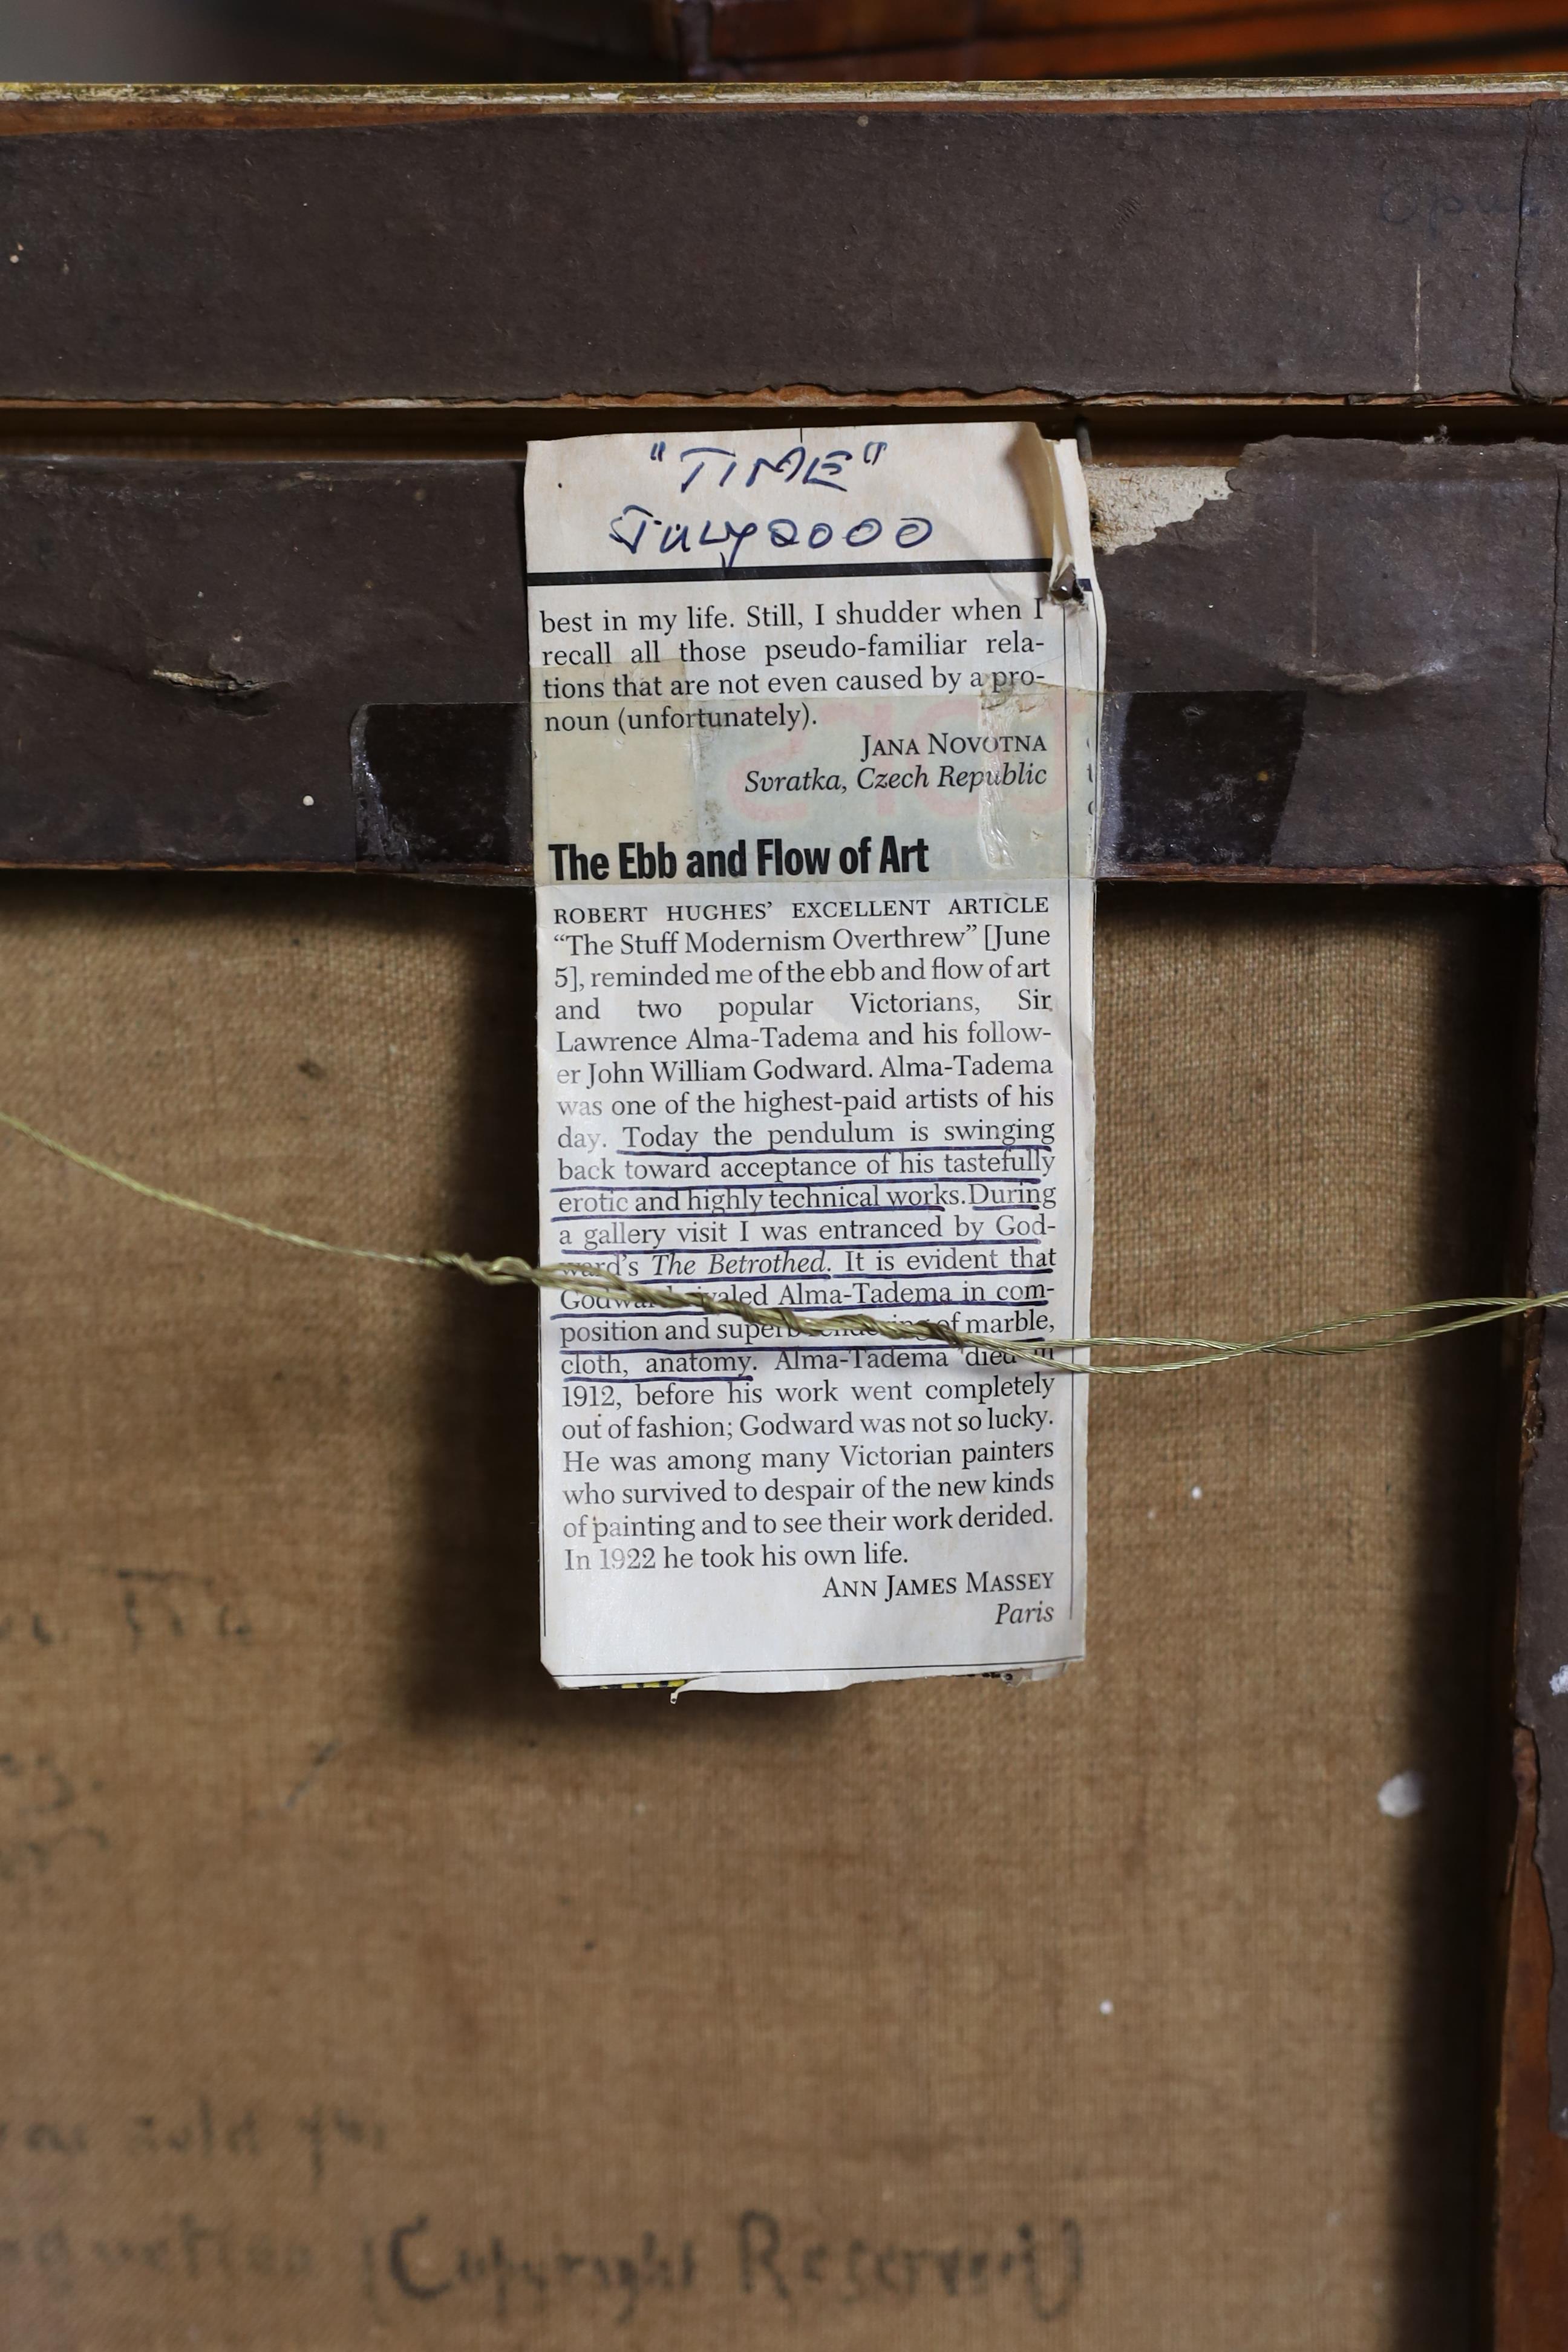 "TIME"
July 2000
best in my life. Still, I shudder when I
recall all those pseudo-familiar rela-
tions that are not even caused by a pro-
noun (unfortunately).
JANA NOVOTNA
Svratka, Czech Republic
The Ebb and Flow of Art
ROBERT HUGHES' EXCELLENT ARTICLE
“The Stuff Modernism Overthrew” [June
5], reminded me of the ebb and flow of art
and two popular Victorians, Sir
Lawrence Alma-Tadema and his follow-
er John William Godward. Alma-Tadema
was one of the highest-paid artists of his
day. Today the pendulum is swinging
back toward acceptance of his tastefully
erotic and highly technical works. During
a gallery visit I was entranced by God-
ward's The Betrothed. It is evident that
Godward rivaled Alma-Tadema in com-
position and superb rendering of marble,
cloth, anatomy. Alma-Tadema died in
1912, before his work went completely
out of fashion; Godward was not so lucky.
He was among many Victorian painters
who survived to despair of the new kinds
of painting and to see their work derided.
In 1922 he took his own life.
ANN JAMES MASSEY
Paris
sold
(Copyright Reserved)